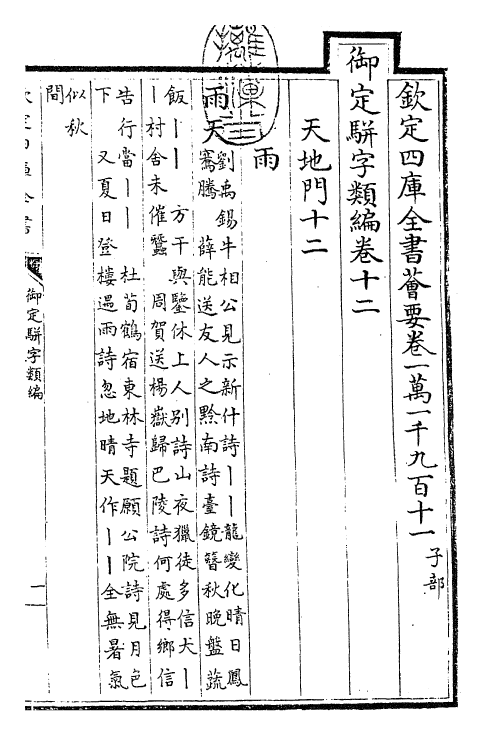 欽定四庫全書薈要卷一萬一千九百十一 子部
御定駢字類編卷十二
天地門十二
雨
雨天
劉禹錫牛相公見示新什詩｜｜龍變化晴日鳳
騫騰 薛能送友人之黔南詩臺鏡簪秋晚盤蔬
飯｜｜ 方干與鑒休上人别詩山夜獵徒多信犬｜
｜村舍未催蠶 周賀送楊嶽歸巴陵詩何處得鄉信
告行當｜｜ 杜荀鶴宿東林寺題願公院詩見月色
下 又夏日登樓遇雨詩忽地晴天作｜｜全無暑氣
似秋
間
御定駢字類編
一